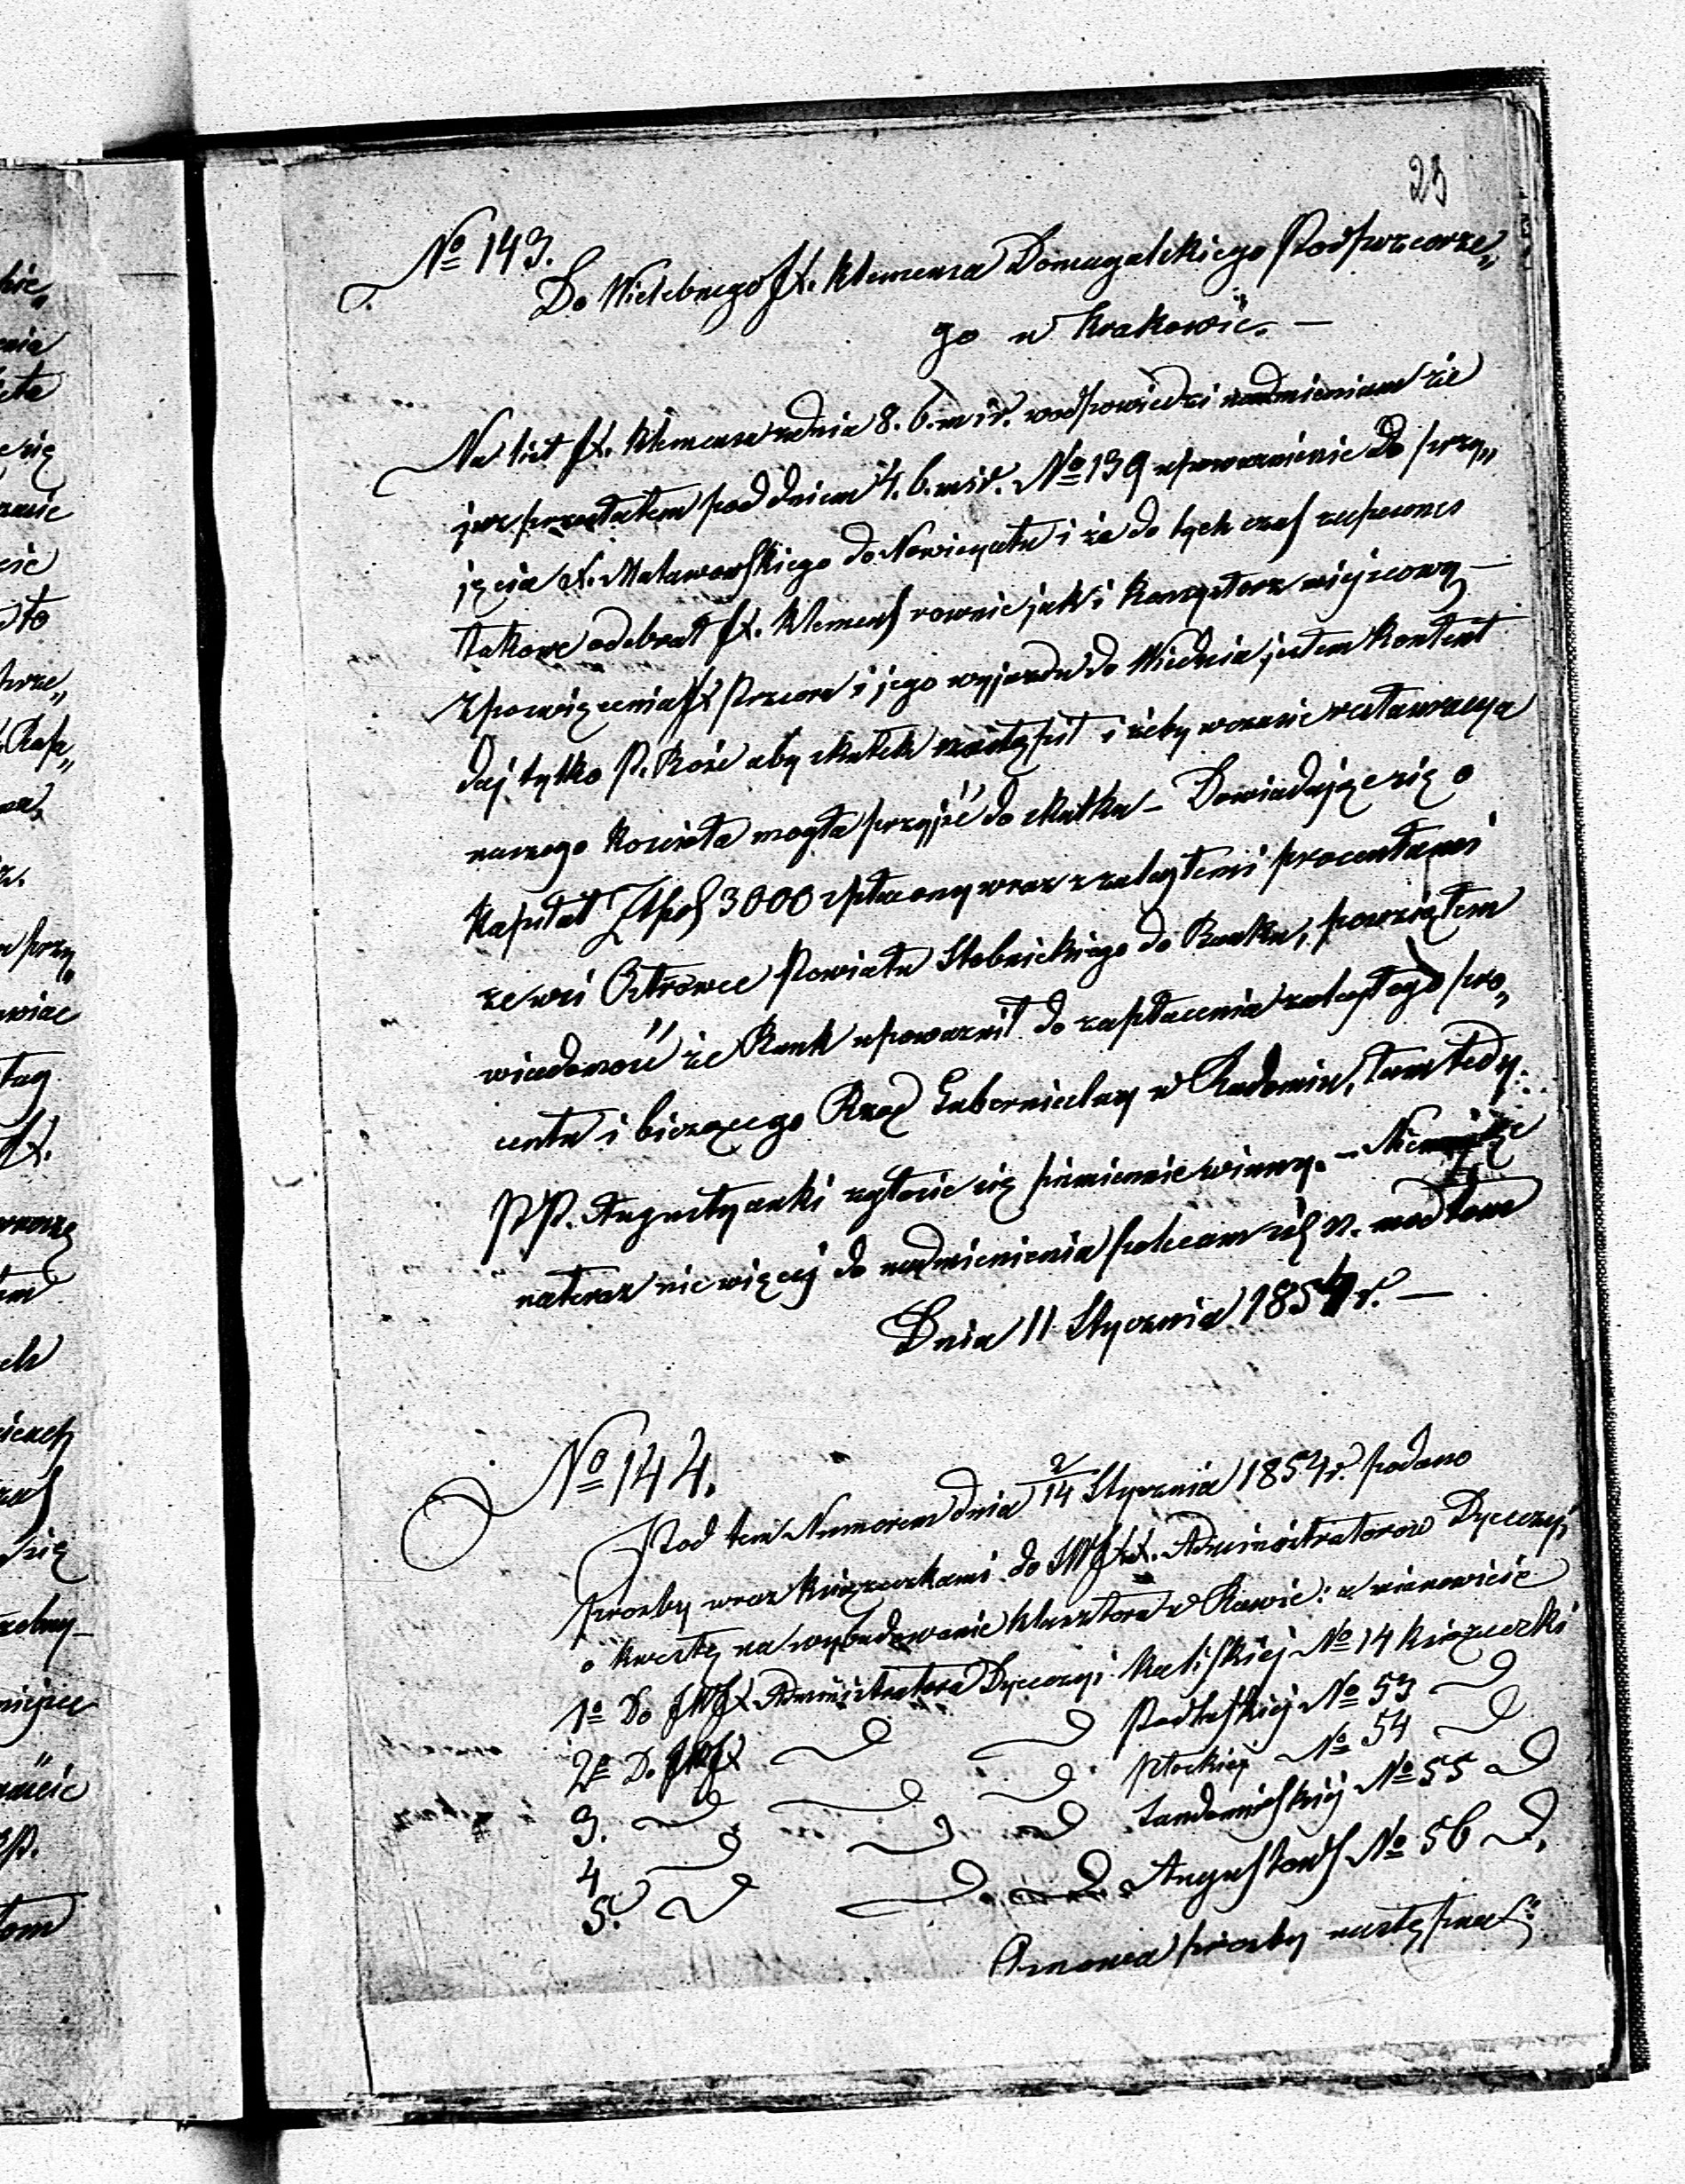 23
№ 143.
Do Wielebnego JX. Klemensa Domagalskiego Podprzeorze„
go w Krakowie. —
Na list JX. Klemensa zdnia 8. b. m i r. wodpowiedzi nadmieniam że
juz przesłałem pod dniem 4. b. m i r. № 139 upoważnienie do przy„
jęcia X. Maławowskiego do Nowicyatu i że do tych czas zupewnes
takowe odebrał JX. Klemens rownie jak i Konsystorz miejscowy —
Z poswięcenia JX Przeora i jego wyjazdu do Wiednia jestem kontent
daj tylko P. Boże aby skutek nastąpił i żeby wczasie restawracya
naszego Koscioła mogła przyjść do skutku — Dowiadując się o
Kapitał Złpol 3000 spłacony wraz z zaległemi procentami
ze wsi Ostrowce Powiatu Stobnickiego do Banku, powziąłem
wiadomość że Bank upoważnił do zapłacenia zaległego pro„
centu i bieżącego Rząd Gubernialny w Radomiu, tam tedy
PP. Augustyanki zgłosić się piśmiennie winny. —
nateraz nic więcej do nadmienienia polecam się ś. modłom
Dnia 11 Stycznia 1854 r. —
№ 144.
Pod tem Numerem dnia 2/14 Stycznia 1854 r. podano
prosby wraz książeczkami do JWJXX. Administratorow Dyecezyi
o kwestę na wybudowanie klasztora w Rawie: a mianowicie
1º Do JWJX Administratora Dyecezyi Kaliskiej № 14 książeczki
2º D. JWJX Podlaskiej № 53
3. Płockiej № 54
4 Sandomirskiej № 55
5. Augustows № 56
Osnowa prosby następna